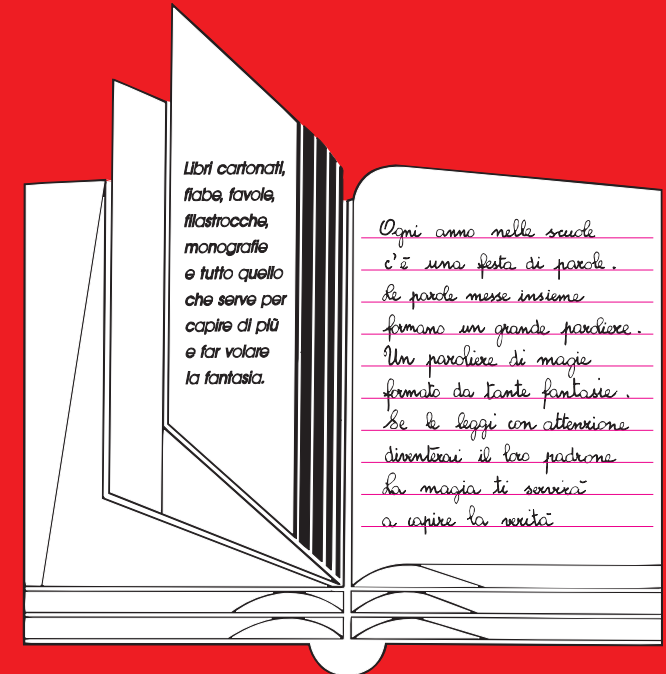 Libri cartonati,
fiabe, favole,
filastrocche,
monografie
e tutto quello
che serve per
capire di più
e far volare
la fantasia.
Ogni anno nelle scuole
c'è una festa di parole.
Le parole messe insieme
formano un grande paroliere.
Un paroliere di magie
formato da tante fantasie.
Se le leggi con attenzione
diventerai il loro padrone
La magia ti servirà
a capire la verità